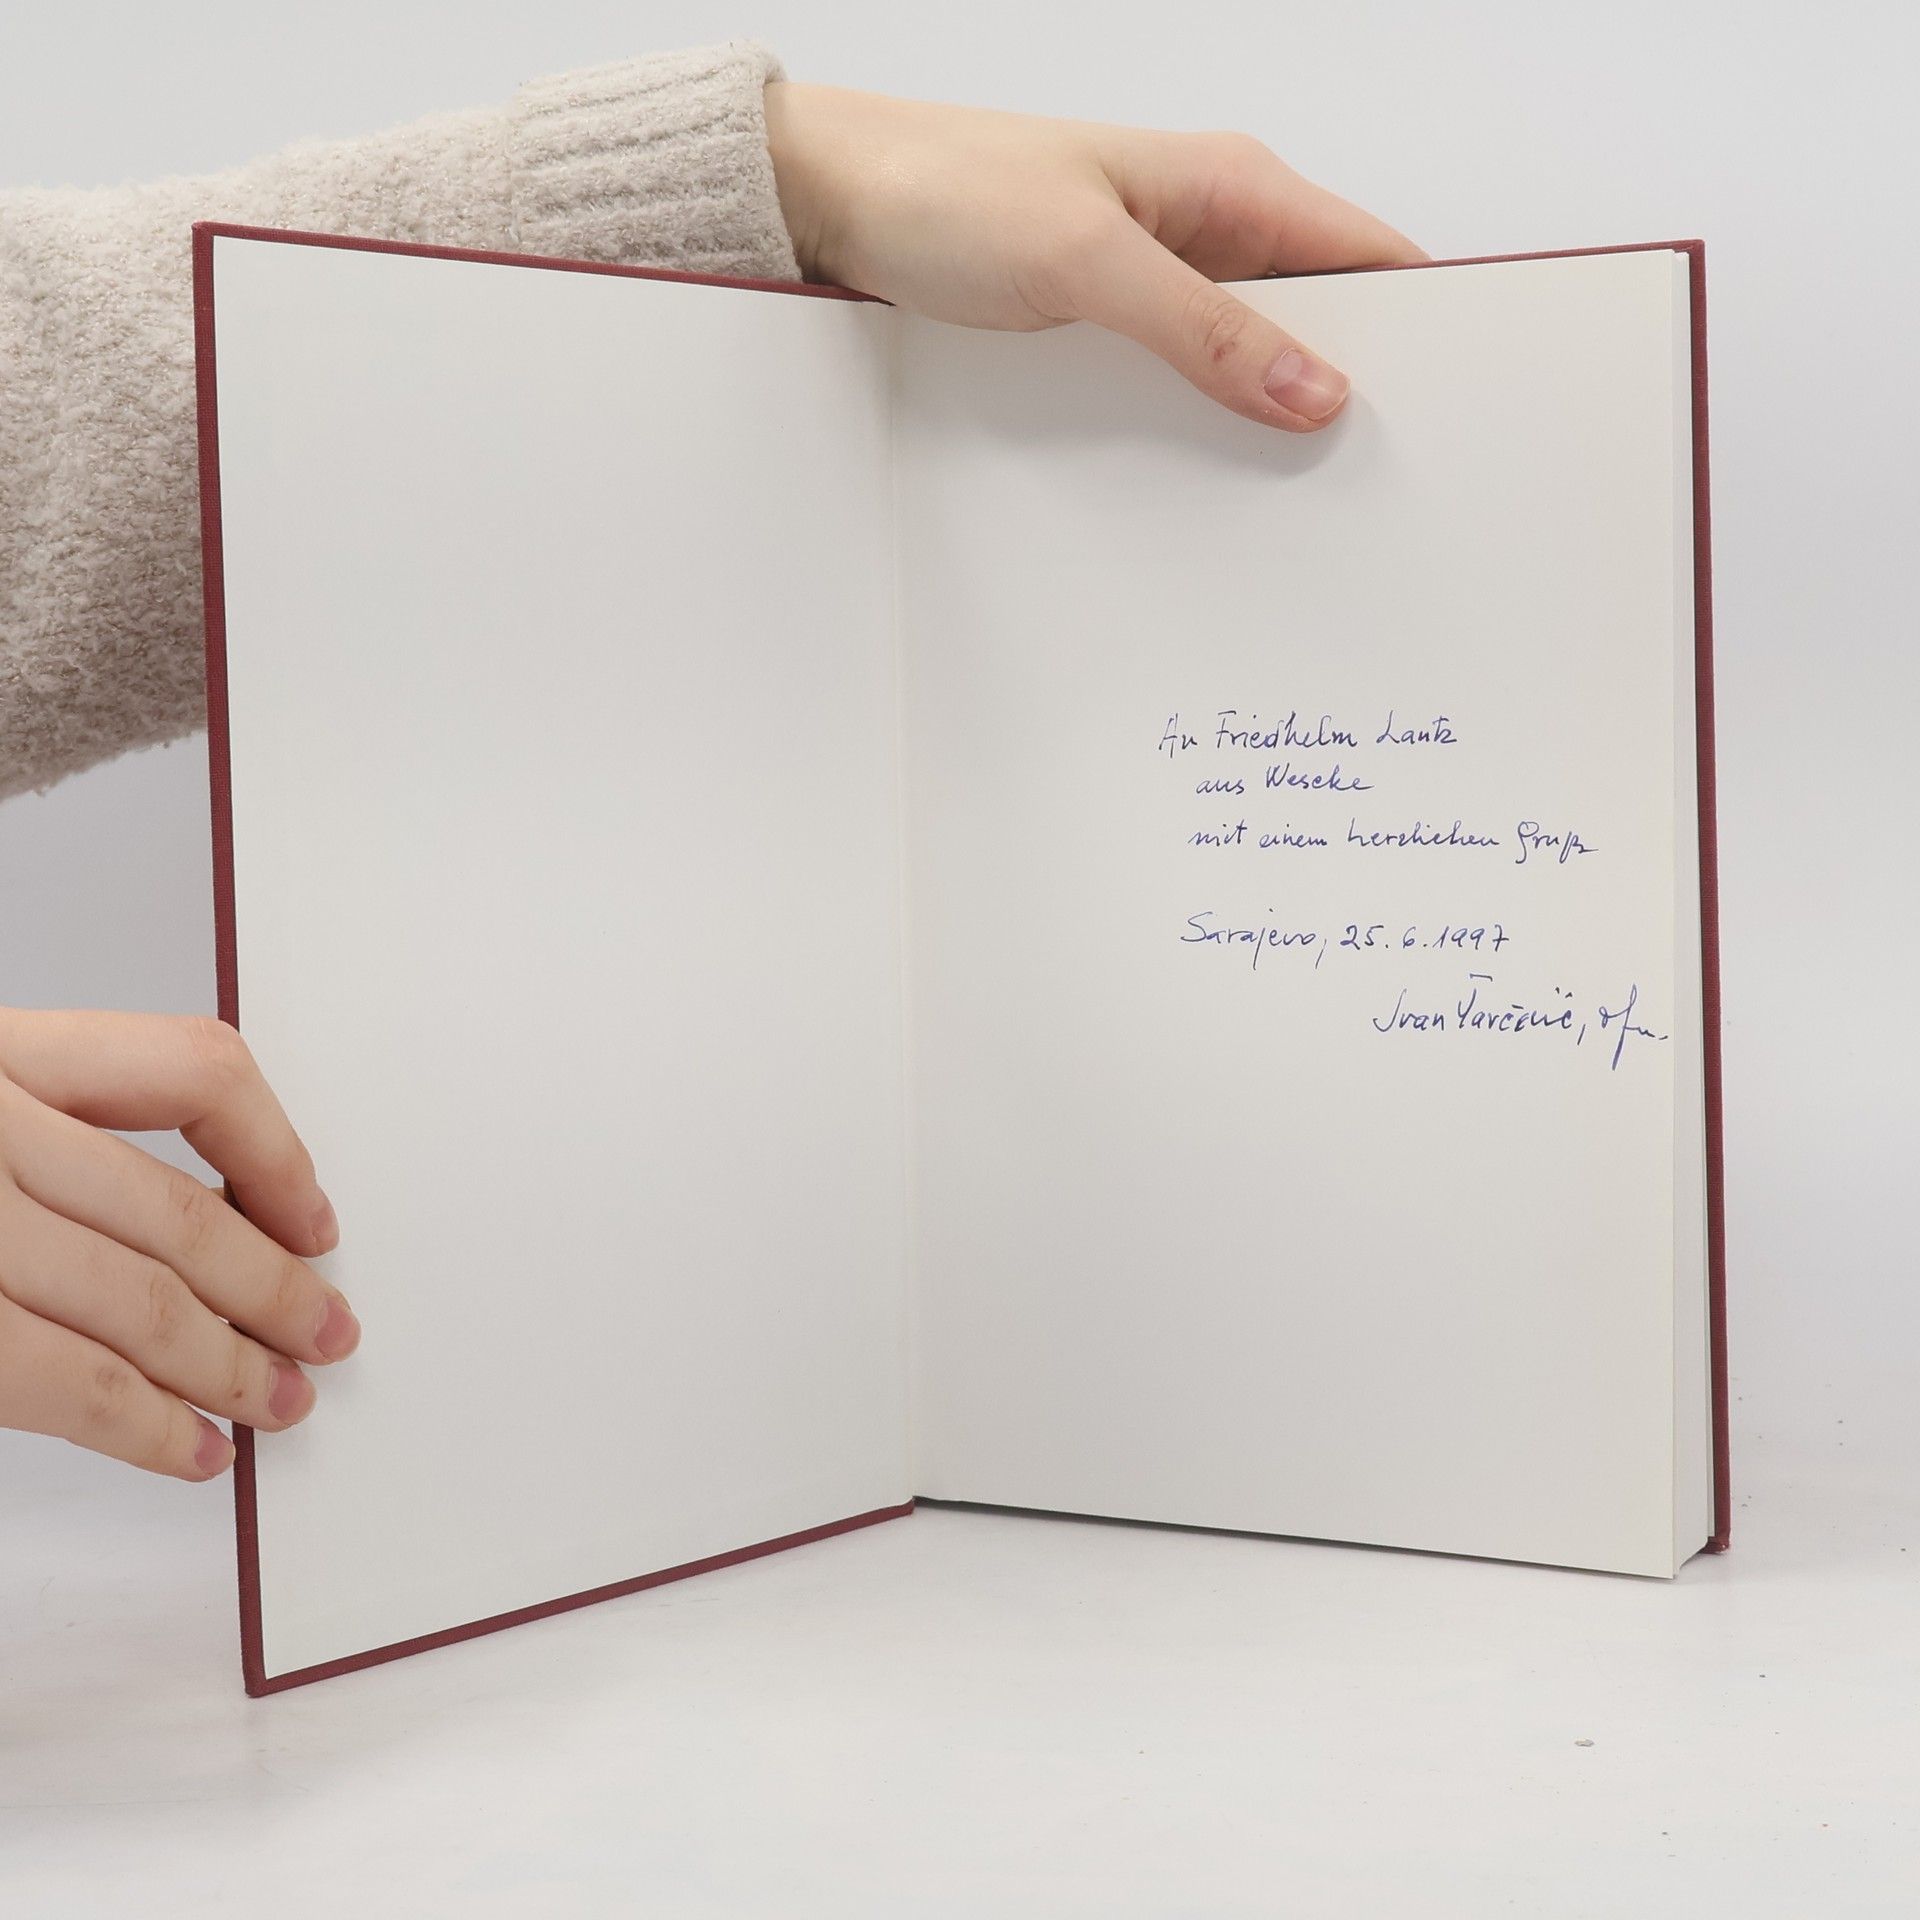 An Friedhelm Lautz
aus Wescke
mit einem herzlichen Gruß
Sarajevo, 25.6.1997
Ivan Šarčević, ofm.